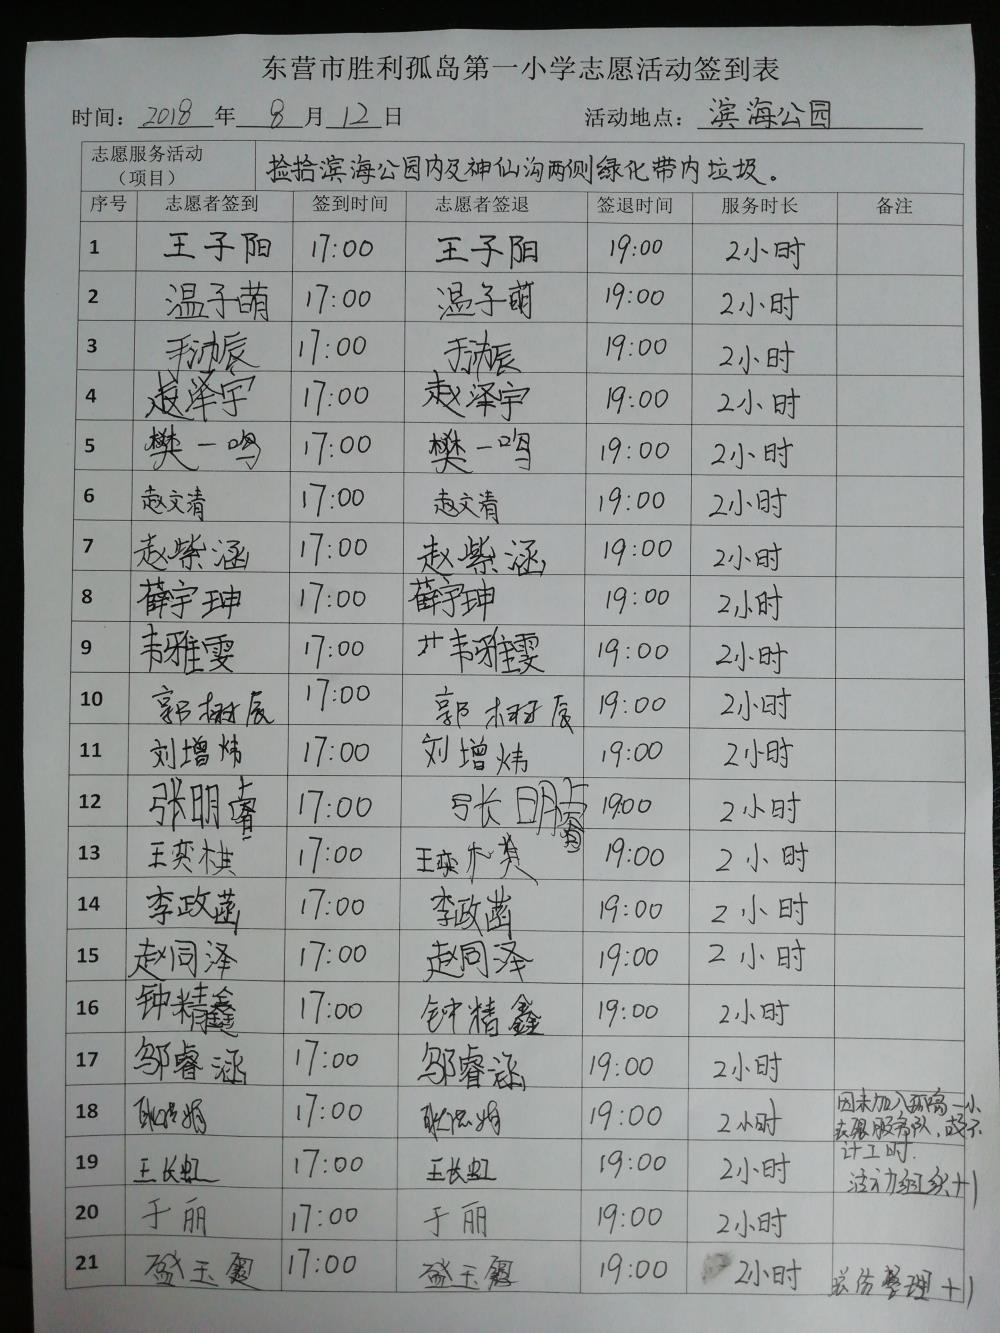 东营市胜利孤岛第一小学志愿活动签到表
时间： 2018 年 8 月 12 日 活动地点： 滨海公园
志愿服务活动（项目） 捡拾滨海公园内及神仙沟两侧绿化带内垃圾。
序号 志愿者签到 签到时间 志愿者签退 签退时间 服务时长 备注
1 王子阳 17:00 王子阳 19:00 2小时
2 温子萌 17:00 温子萌 19:00 2小时
3 17:00 19:00 2小时
4 赵泽宇 17:00 赵泽宇 19:00 2小时
5 樊一鸣 17:00 樊一鸣 19:00 2小时
6 赵文清 17:00 赵文清 19:00 2小时
7 赵紫涵 17:00 赵紫涵 19:00 2小时
8 薛宇珅 17:00 薛宇珅 19:00 2小时
9 韦雅雯 17:00 韦雅雯 19:00 2小时
10 郭树辰 17:00 郭树辰 19:00 2小时
11 刘增炜 17:00 刘增炜 19:00 2小时
12 张明睿 17:00 张明睿 1900 2小时
13 王奕棋 17:00 王奕棋 19:00 2小时
14 李政菡 17:00 李政菡 19:00 2小时
15 赵同泽 17:00 赵同泽 19:00 2小时
16 钟精鑫 17:00 钟精鑫 19:00 2小时
17 邬睿涵 17:00 邬睿涵 19:00 2小时
18 17:00 19:00 2小时 因未加入孤岛一小服务队，故不计工时.
19 王长虹 17:00 王长虹 19:00 2小时 活动组织+1
20 于丽 17:00 于丽 19:00 2小时
21 盛玉 17:00 盛玉 19:00 2小时 整理+1